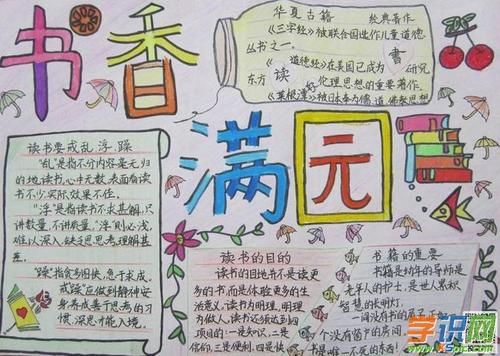 书香
满元
华夏古籍 经典著作
《三字经》被联合国选作儿童道德
丛书之一.
《道德经》在美国已成为 書 研究
东方 读 伦理思想的重要著作.
《菜根谭》被日本奉为儒、道、佛教思想
读书要戒乱、浮、躁
“乱”是指不分内容毫无归
的地读书,心中无数,表面看读
书不少实际效果不佳.
“浮”是指读书不求甚解,只
讲数量,不讲质量,“浮”则必浅,
难以深入,缺乏思考理解甚
差.
“躁”指贪多招快,急于求成,
戒“躁”应做到静神安
身养成善于思考的习
惯,深思才能入境.
读书的目的
读书的目地并不是读更
多的书,而是体验更多的生
活意义,读书为明理,明理
为做人,读书必须达到四
项目的:一是知识,二是
信仰,三是便利,四是快
书籍的重要
书籍是幼年的导师是
老年人的护士,是世人累积
智慧的长明灯.
一间没有书的屋子,正如一
个没有窗户的房间.
学识网